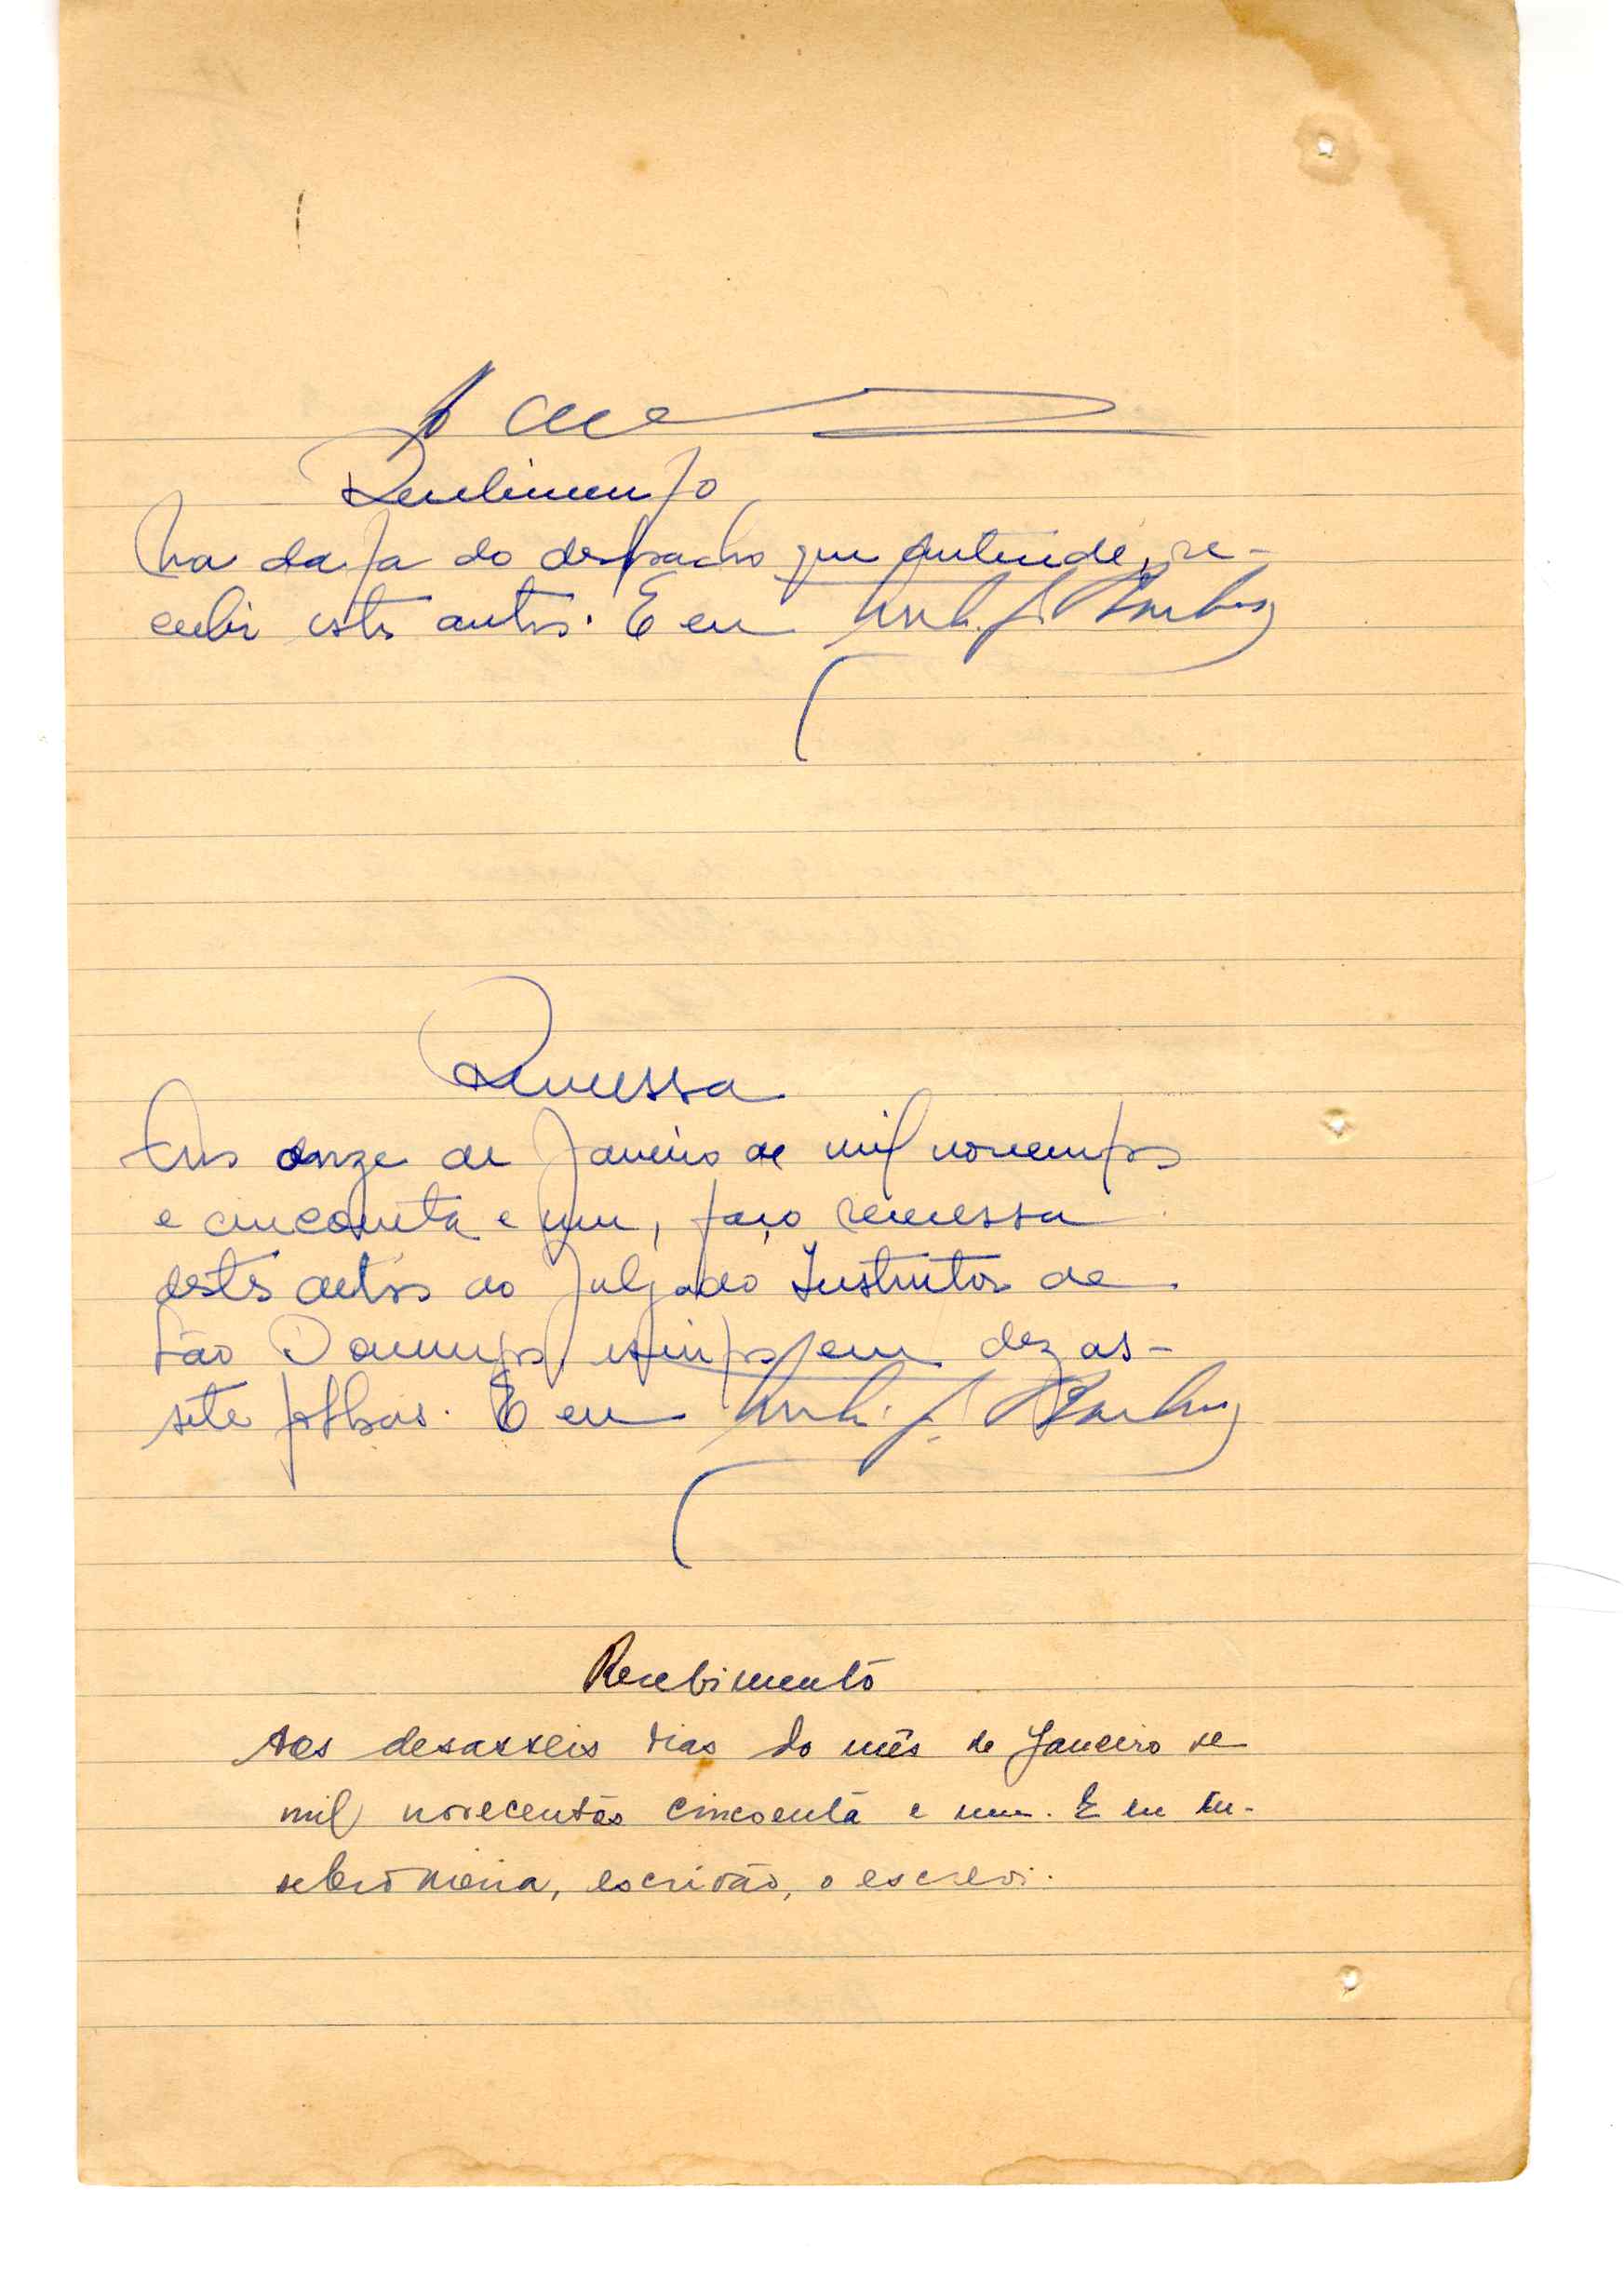 Recebimento
Na data do despacho que antende, re-
cebi estes autos. E eu
Remessa
Aos onze de Janeiro de mil novecentos
e cincoenta e um, faço remessa
destes autos ao Julgado Instrutor de
São Domingos, escritos em dezas-
sete folhas. E eu
Recebimento
Aos desasseis dias do mês de Janeiro de
mil novecentos cincoenta e um. E eu Eu-
sebio Maria, escrivão, o escrevi.